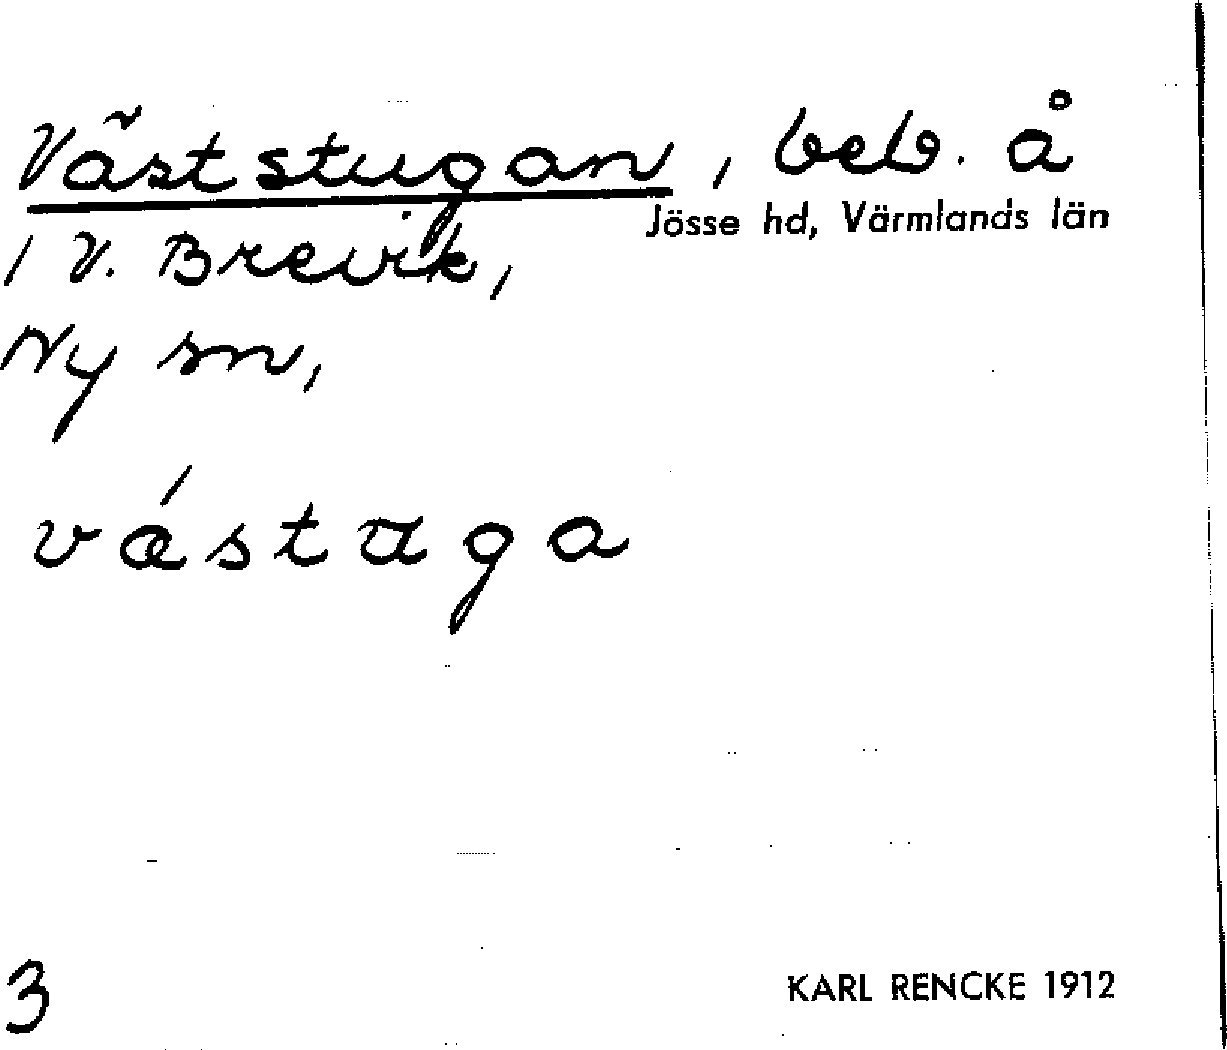 Väststugan, beb. å
Jösse hd, Värmlands län
1 V. Brevik,
Ny sn,
vǽstaga
3
KARL RENCKE 1912